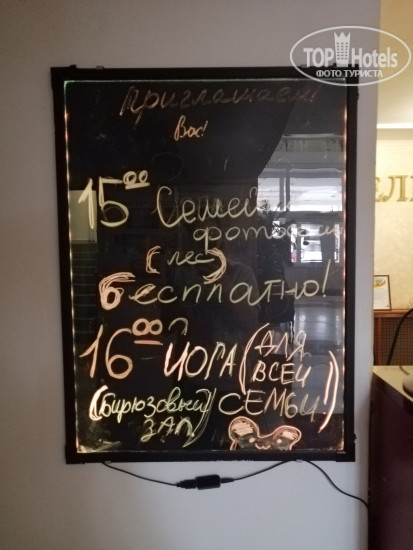 TOP Hotels
ФОТО ТУРИСТА
Приглашаем!
Вас!
15⁰⁰ Семей
(лес)
бесплатно!
16⁰⁰ ЙОГА (ДЛЯ
ВСЕЙ
СЕМЬИ!)
(Бирюзовый
ЗАЛ)